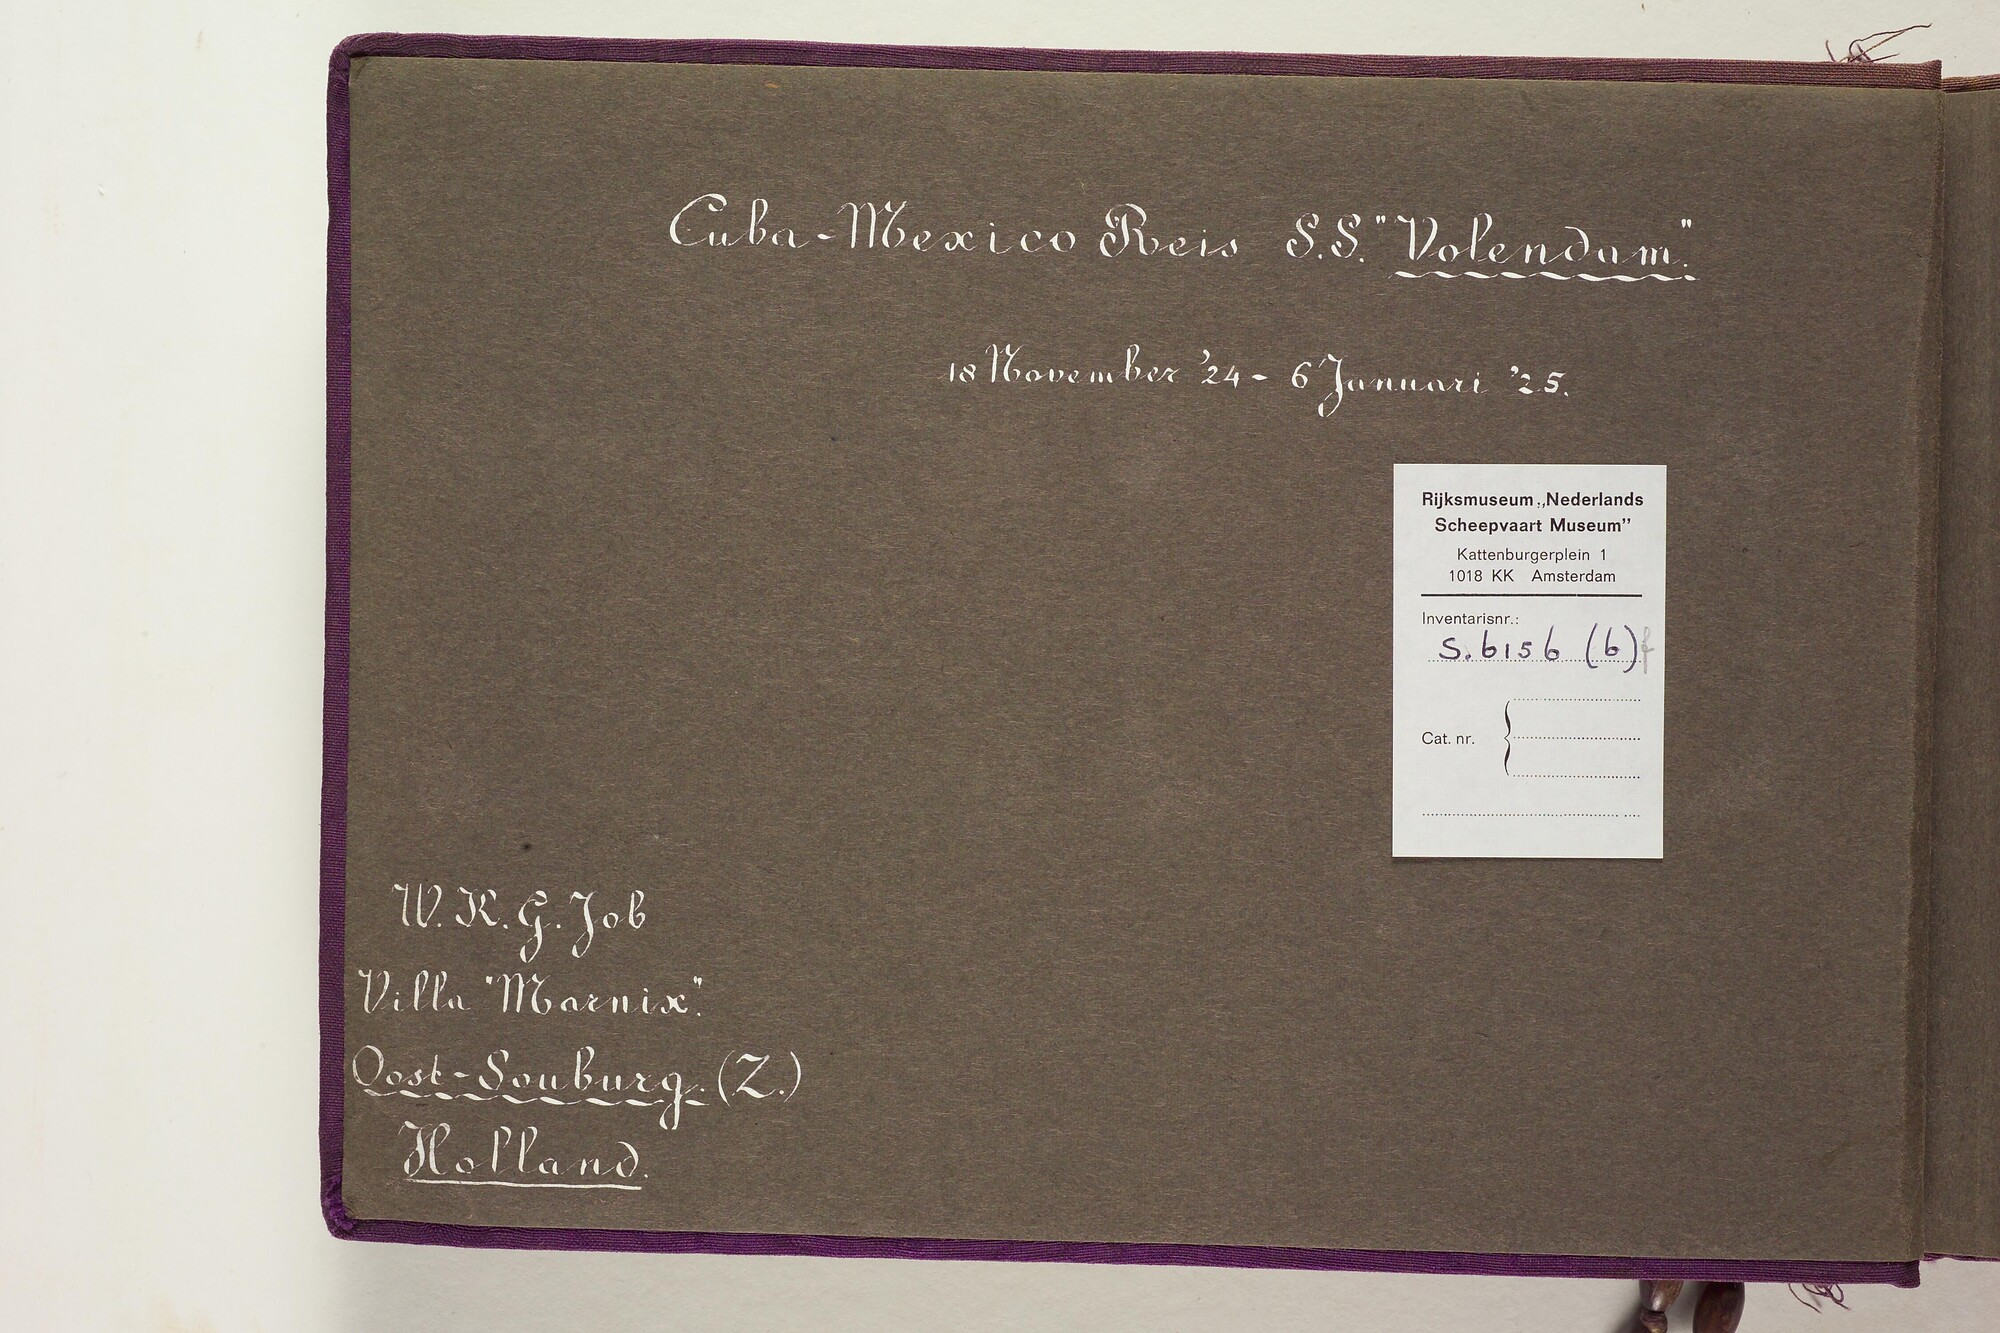 Cuba-Mexico Reis S.S. "Volendam".
18 November '24 - 6 Januari '25.
Rijksmuseum „Nederlands
Scheepvaart Museum”
Kattenburgerplein 1
1018 KK Amsterdam
Inventarisnr.:
S.6156 (6)
Cat. nr.
W.K.G. Job
Villa "Marnix".
Oost-Souburg. (Z.)
Holland.